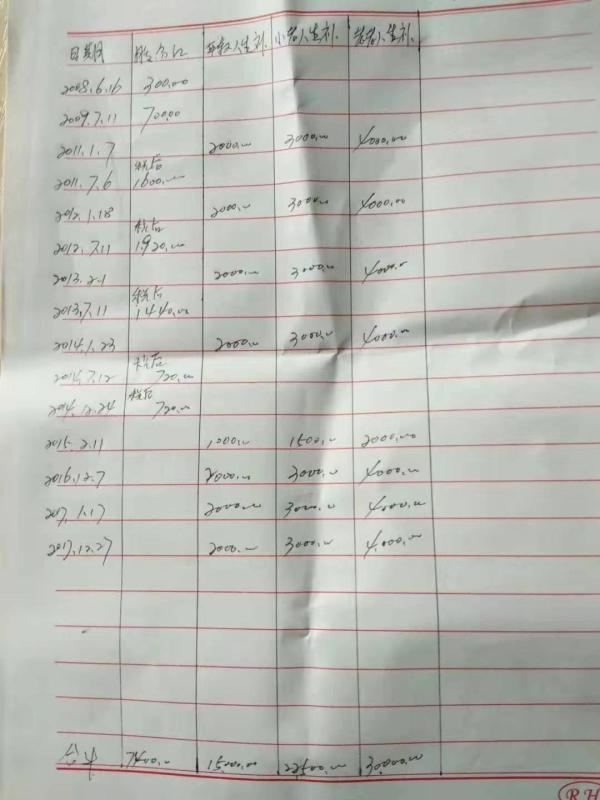 日期 人生补. 小老人生补. 老人生补.
2008.6.16 300.00
2009.7.11 700.00
2011.1.7 2000.00 3000.00 4000.00
税后
2011.7.6 1600.00
2012.1.18 2000.00 3000.00 4000.00
税后
2012.7.11 1920.00
2013.2.1 2000.00 3000.00 4000.00
税后
2013.7.11 1440.00
2014.1.23 2000.00 3000.00 4000.00
税后
2014.7.12 720.00
税后
2014.12.24 720.00
2015.2.11 1000.00 1500.00 2000.00
2016.12.7 2000.00 3000.00 4000.00
2017.1.17 2000.00 3000.00 4000.00
2017.12.27 2000.00 3000.00 4000.00
合计 7400.00 15000.00 22500.00 30000.00
RH